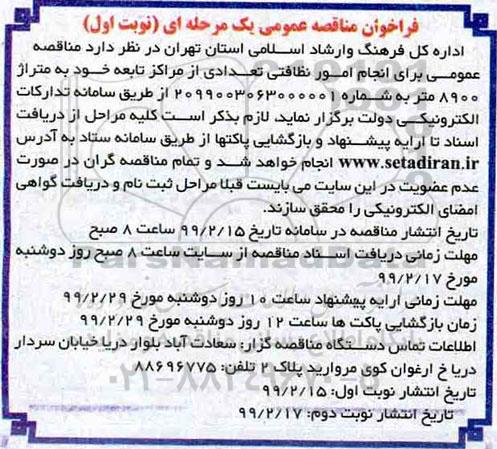 فراخوان مناقصه عمومی یک مرحله ای (نوبت اول)
اداره کل فرهنگ وارشاد اسلامی استان تهران در نظر دارد مناقصه
عمومی برای انجام امور نظافتی تعدادی از مراکز تابعه خود به متراژ
۸۹۰۰ متر به شماره ۲۰۹۹۰۰۳۰۶۳۰۰۰۰۰۱ از طریق سامانه تدارکات
الکترونیکی دولت برگزار نماید. لازم بذکر است کلیه مراحل از دریافت
اسناد تا ارایه پیشنهاد و بازگشایی پاکتها از طریق سامانه ستاد به آدرس
www.setadiran.ir انجام خواهد شد و تمام مناقصه گران در صورت
عدم عضویت در این سایت می بایست قبلا مراحل ثبت نام و دریافت گواهی
امضای الکترونیکی را محقق سازند.
تاریخ انتشار مناقصه در سامانه تاریخ ۹۹/۲/۱۵ ساعت ۸ صبح
مهلت زمانی دریافت اسناد مناقصه از سایت ساعت ۸ صبح روز دوشنبه
مورخ ۹۹/۲/۱۷
مهلت زمانی ارایه پیشنهاد ساعت ۱۰ روز دوشنبه مورخ ۹۹/۲/۲۹
زمان بازگشایی پاکت ها ساعت ۱۲ روز دوشنبه مورخ ۹۹/۲/۲۹
اطلاعات تماس دستگاه مناقصه گزار: سعادت آباد بلوار دریا خیابان سردار
دریا خ ارغوان کوی مروارید پلاک ۲ تلفن: ۸۸۶۹۶۷۷۵
تاریخ انتشار نوبت اول: ۹۹/۲/۱۵
تاریخ انتشار نوبت دوم: ۹۹/۲/۱۷